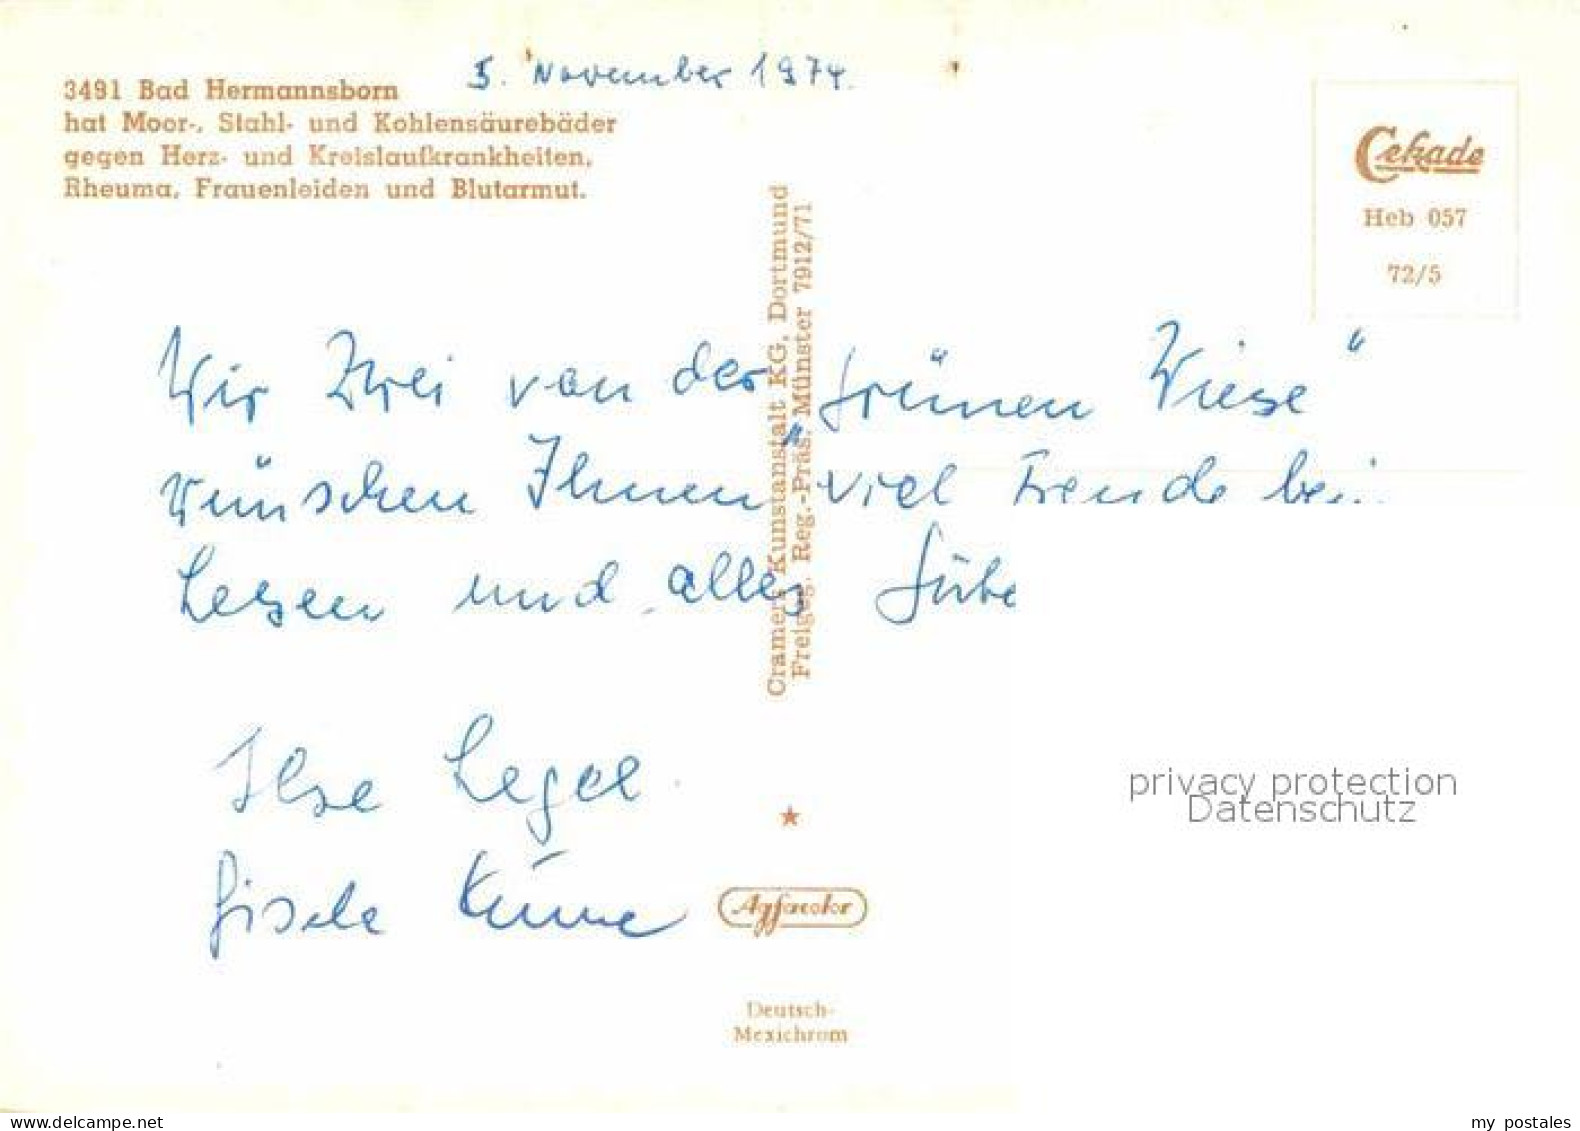 5. November 1974.
3491 Bad Hermannsborn
hat Moor-, Stahl- und Kohlensäurebäder
gegen Herz- und Kreislaufkrankheiten,
Rheuma, Frauenleiden und Blutarmut.
Cekade
Heb 057
72/5
Cramers Kunstanstalt KG, Dortmund
Freigeg. Reg.-Präs. Münster 7912/71
Wir Zwei von der „Grünen Wiese“
wünschen Ihnen viel Freude bei..
Lesen und alles Gute
Ilse Legel
Gisela
privacy protection
Datenschutz
Agfacolor
Deutsch-
Mexichrom
www.delcampe.net
my postales